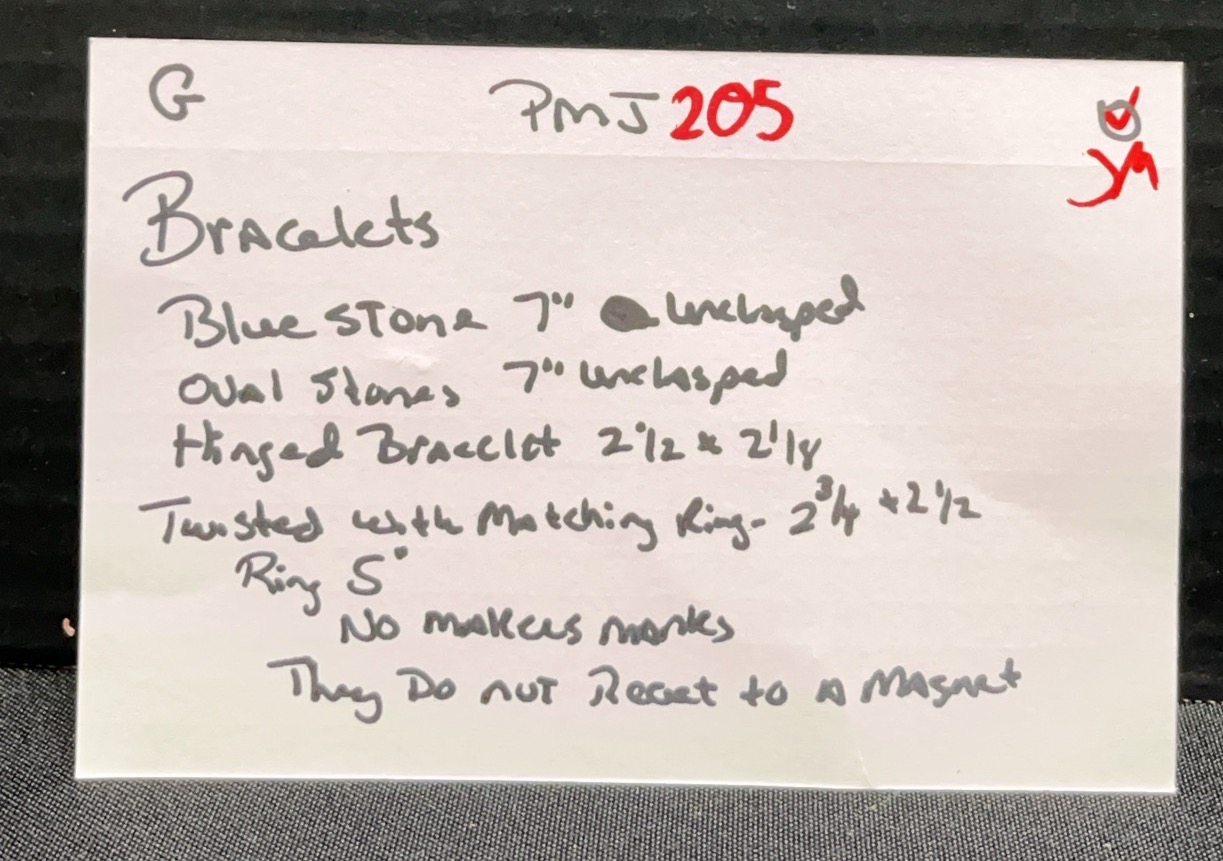 G PMJ 205
Bracelets
Blue Stone 7" unclasped
Oval Stones 7" unclasped
Hinged Bracelet 2 1/2 x 2 1/8
Twisted with Matching Ring - 2 3/4 x 2 1/2
Ring 5"
No makers marks
They Do not React to a Magnet